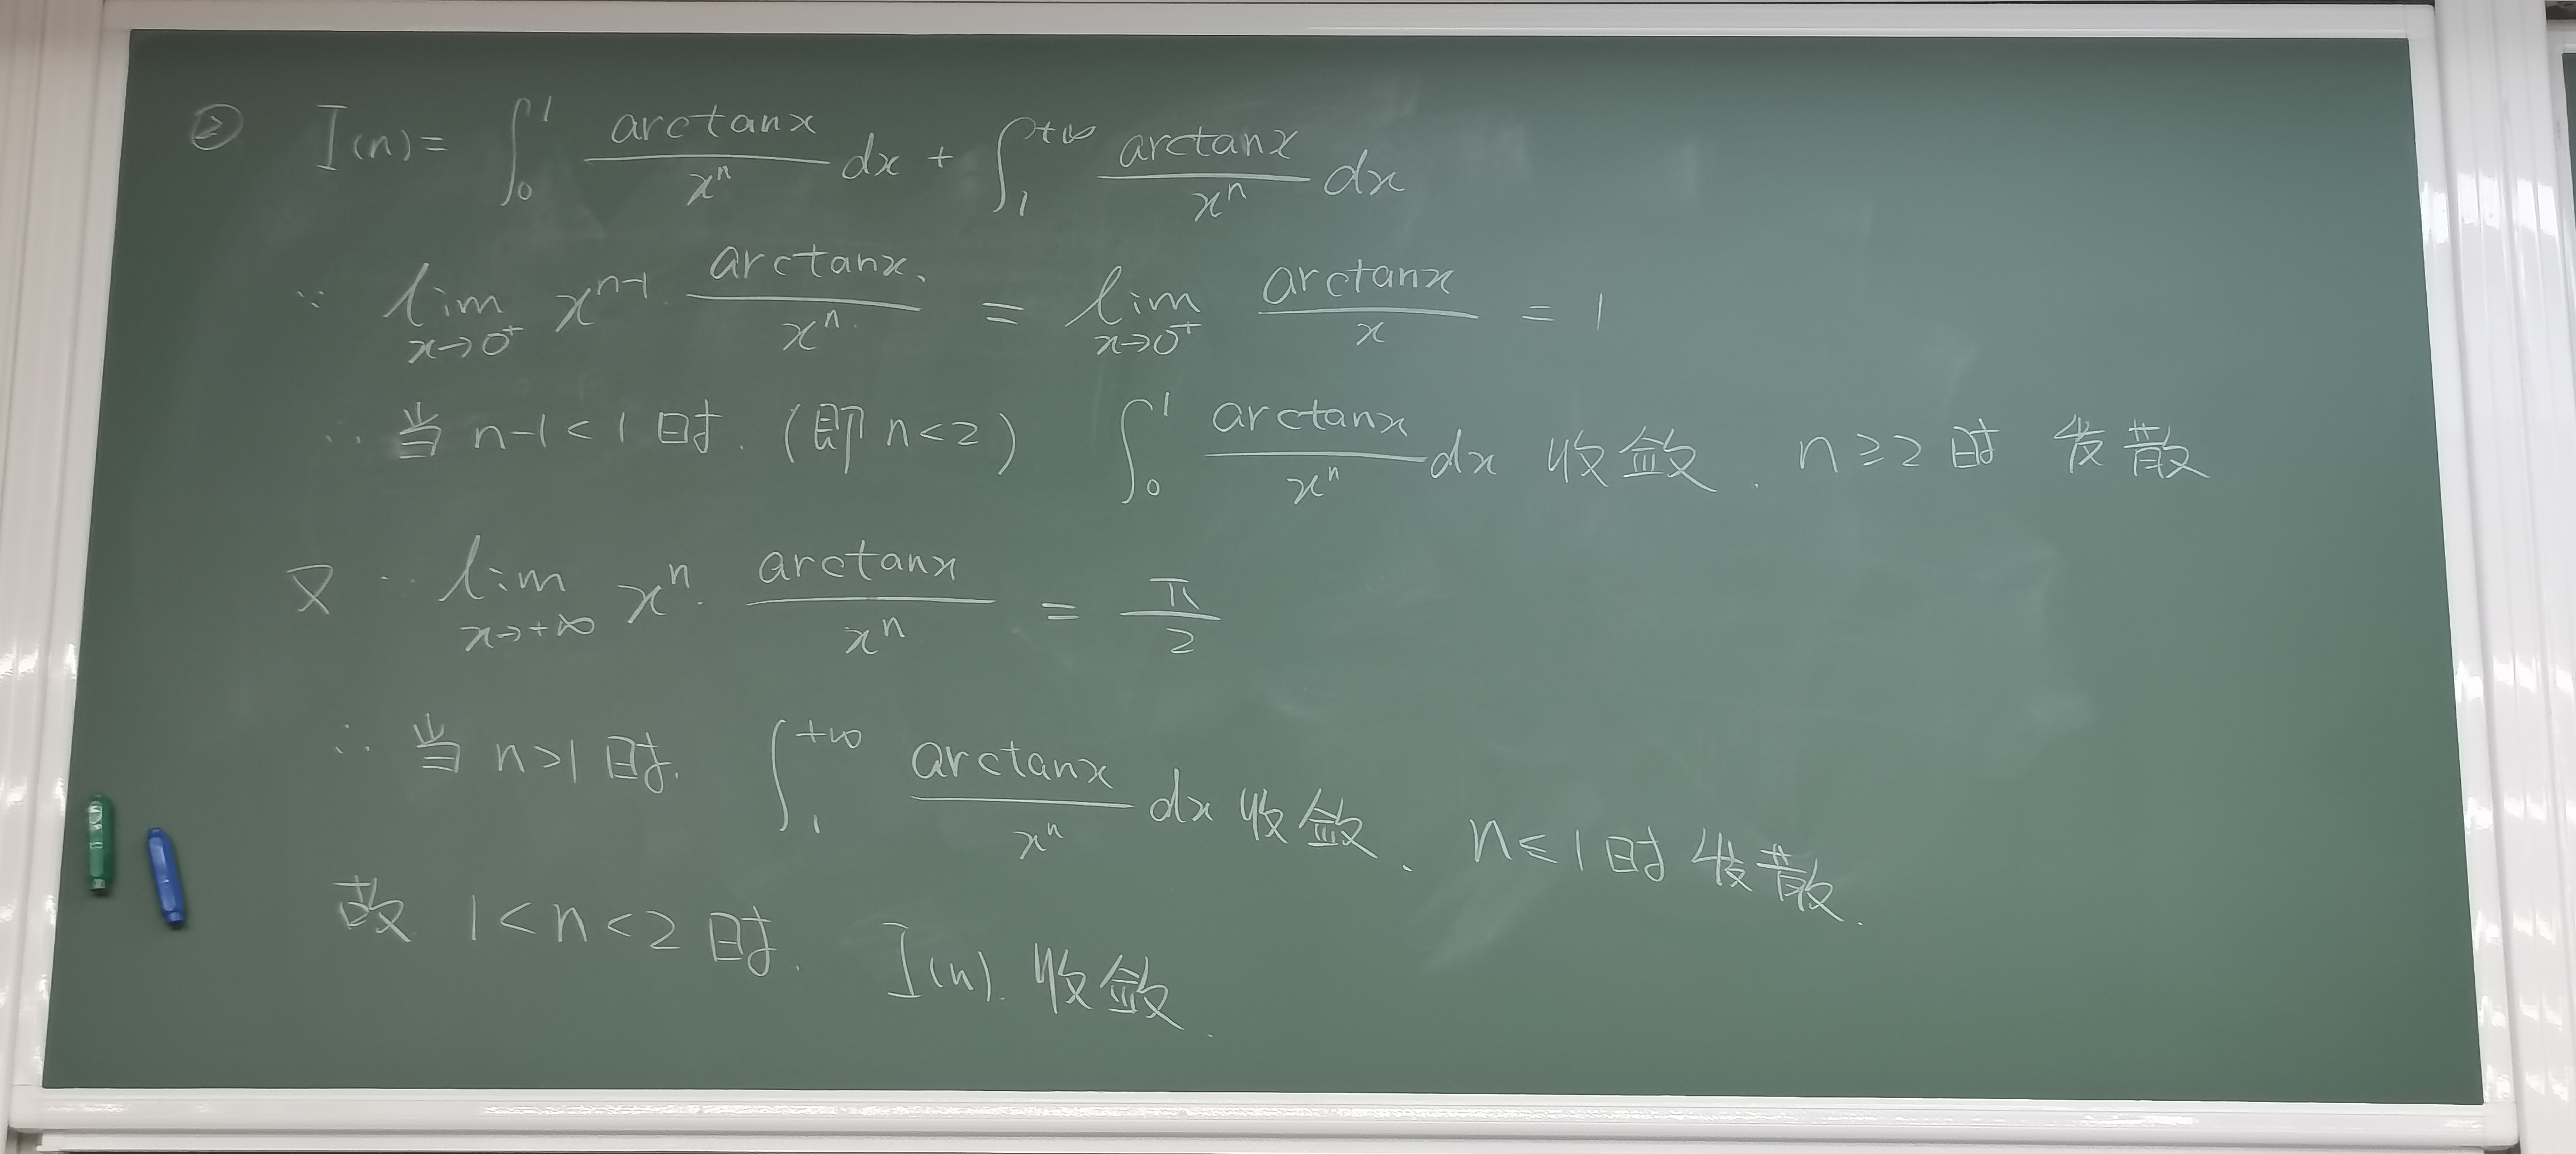 ② I(n) = ∫₀¹ arctanx/xⁿ dx + ∫₁^{+∞} arctanx/xⁿ dx
∵ lim_{x→0⁺} x^{n-1} · arctanx/xⁿ = lim_{x→0⁺} arctanx/x = 1
∴ 当 n-1<1 时. (即 n<2) ∫₀¹ arctanx/xⁿ dx 收敛. n≥2 时 发散
又 ∵ lim_{x→+∞} xⁿ · arctanx/xⁿ = π/2
∴ 当 n>1 时. ∫₁^{+∞} arctanx/xⁿ dx 收敛. n≤1 时 发散.
故 1<n<2 时. I(n). 收敛.